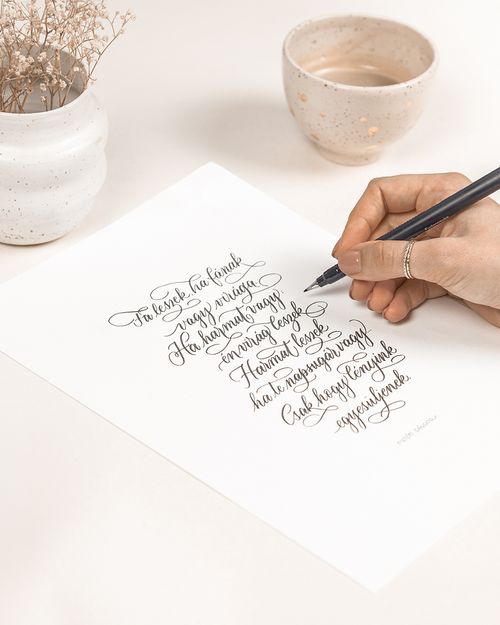 Fa leszek, ha fának
vagy virága
Ha harmat vagy
én virág leszek
Harmat leszek
ha te napsugár vagy
Csak hogy lényink
egyesüljenek.